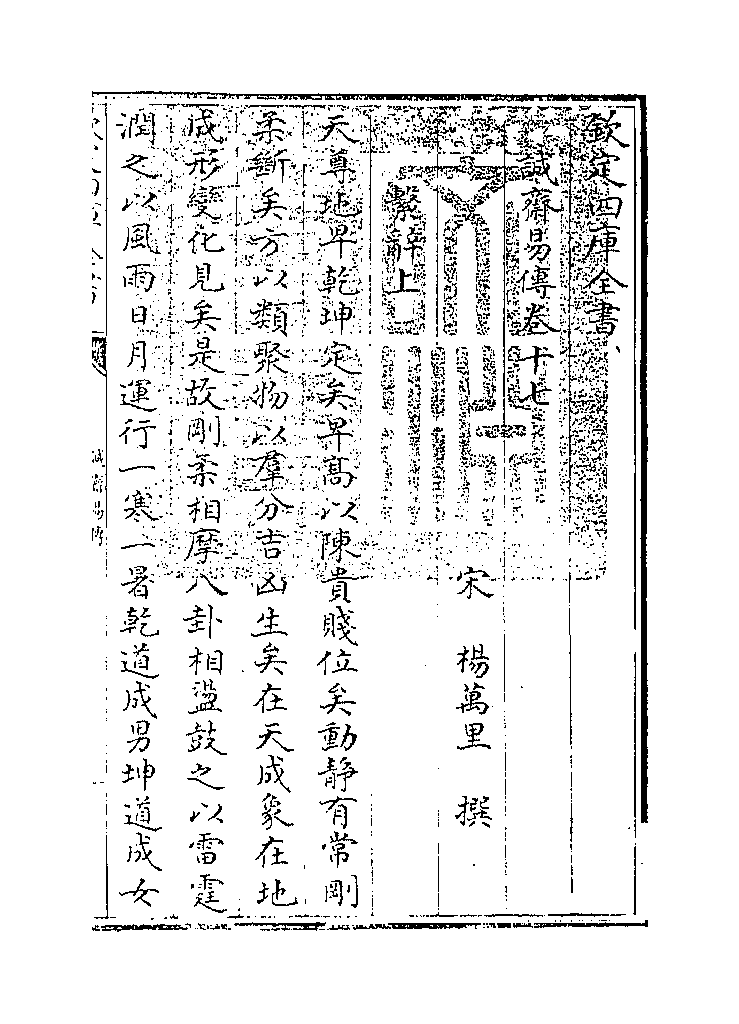 欽定四庫全書
誠齋易傳卷十七
宋 楊萬里 撰
繫辭上
天尊地卑乾坤定矣卑高以陳貴賤位矣動靜有常剛
柔斷矣方以類聚物以羣分吉凶生矣在天成象在地
成形變化見矣是故剛柔相摩八卦相盪鼓之以雷霆
潤之以風雨日月運行一寒一暑乾道成男坤道成女
誠齋易傳